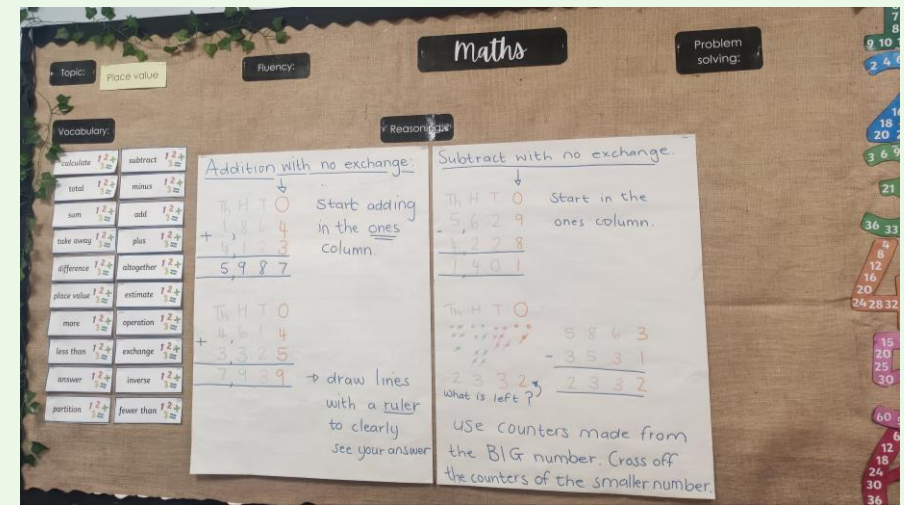 Maths
Topic:
Place value
Fluency:
Problem solving:
Vocabulary:
Reasoning:
calculate
subtract
total
minus
sum
add
take away
plus
difference
altogether
place value
estimate
more
operation
less than
exchange
answer
inverse
partition
fewer than
Addition with no exchange:
Th H T O
1,864
+ 4,123
5,987
Start adding
in the ones
column.
Th H T O
4,614
+ 3,325
7,939
→ draw lines
with a ruler
to clearly
see your answer
Subtract with no exchange.
Th H T O
5,629
- 4,228
1,401
Start in the
ones column.
Th H T O
2332
what is left?
5863
- 3531
2332
use counters made from
the BIG number. Cross off
the counters of the smaller number.
7
8
9 10
2 4 6
18
20
3 6 9
21
36 33
4
8
12
16
20
24 28 32
15
20
25
30
60
6
12
18
24
30
36